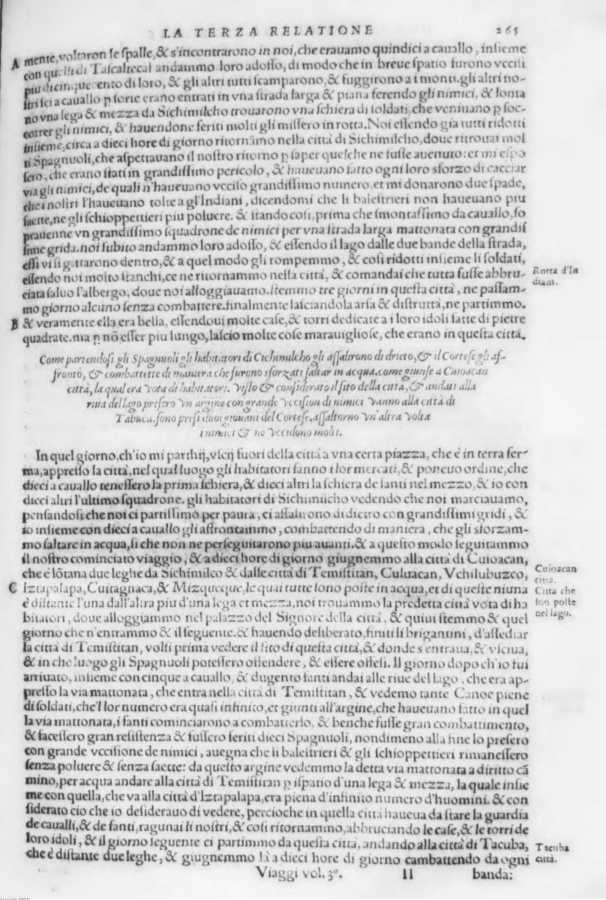 LA TERZA RELATIONE 265
A mente, voltaron le spalle, & s'incontrarono in noi, che erauamo quindici a cauallo, insieme
con quelli di Tascaltecal andammo loro adosso, di modo che in breue spatio furono vccisi
piu di cinquecento di loro, & gli altri tutti scamparono, & fuggirono a i monti. gli altri no-
stri sei a cauallo p sorte erano entrati in vna strada larga & piana ferendo gli nimici, & lonta
no vna lega & mezza da Sichimilcho trouarono vna schiera di soldati, che veniuano p soc-
correr gli nimici, & hauendone feriti molti gli missero in rotta. Noi essendo gia tutti ridotti
insieme, circa a dieci hore di giorno ritornamo nella città di Sichimilcho, doue ritrouai mol
ti Spagnuoli, che aspettauano il nostro ritorno p saper quel che ne fusse auenuto: et mi espo
sero, che erano stati in grandissimo pericolo, & haueuano fatto ogni loro sforzo di cacciar
via gli nimici, de quali n'haueuano vcciso grandissimo numero. et mi donarono due spade,
che i nostri l'haueuano tolte a gl'Indiani, dicendomi che li balestrieri non haueuano piu
saette, ne gli schioppettieri piu poluere. & stando cosi, prima che smontassimo da cauallo, so
prauenne vn grandissimo squadrone de nimici per vna strada larga mattonata con grandis
sime grida. noi subito andammo loro adosso, & essendo il lago dalle due bande della strada,
essi vi si gittarono dentro, & a quel modo gli rompemmo, & cosi ridotti insieme li soldati,
essendo noi molto stanchi, ce ne ritornammo nella città, & comandai che tutta fusse abbru-
ciata saluo l'albergo, doue noi alloggiauamo. stemmo tre giorni in questa città, ne passam-
mo giorno alcuno senza combattere. finalmente lasciandola arsa & distrutta, ne partimmo.
B & veramente ella era bella, essendoui molte case, & torri dedicate a i loro idoli fatte di pietre
quadrate. ma p nō esser piu lungo, lascio molte cose marauigliose, che erano in questa città.
Rotta d'In
diani.
Come partendosi gli Spagnuoli gli habitatori di Cichimilcho gli assalirono di drieto, & il Cortese gli af-
frontò, & combattette di maniera che furono sforzati saltar in acqua. come giunse a Cuioacan
città, la qual era vota di habitatori. visto & considerato il sito della città, & andati alla
riua del lago presero vn argine con grande vccision di nimici vanno alla città di
Tabuca. sono presi duoi giouani del Cortese. assaltorno vn'altra volta
i nimici & ne vccidono molti.
In quel giorno, ch'io mi partij, vscij fuori della città a vna certa piazza, che è in terra fer-
ma, appresso la città, nel qual luogo gli habitatori fanno i lor mercati, & poneuo ordine, che
dieci a cauallo tenessero la prima schiera, & dieci altri la schiera de fanti nel mezzo, & io con
dieci altri l'ultimo squadrone. gli habitatori di Sichimilcho vedendo che noi marciauamo,
pensandosi che noi ci partissimo per paura, ci assalirono di dietro con grandissimi gridi, &
io insieme con dieci a cauallo gli affrontammo, combattendo di maniera, che gli sforzam-
mo saltare in acqua, si che non ne perseguitarono piu auanti. & a questo modo seguitammo
il nostro cominciato viaggio, & a dieci hore di giorno giugnemmo alla città di Cuioacan,
che è lōtana due leghe da Sichimilco & dalle città di Temistitan, Culuacan, Vchilubuzco,
C Iztapalapa, Cuitagnaca, & Mizquecque, le quai tutte sono poste in acqua, et di queste niuna
è distante l'una dall'altra piu d'una lega et mezza, noi trouammo la predetta città vota di ha
bitatori, doue alloggiammo nel palazzo del Signore della città, & quiui stemmo & quel
giorno che n'entrammo & il seguente. & hauendo deliberato, finiti li brigantini, d'assediar
la città di Temistitan, volsi prima vedere il sito di questa città, & donde s'entraua, & vsciua,
& in che luogo gli Spagnuoli potessero offendere, & essere offesi. Il giorno dopo ch'io fui
arriuato, insieme con cinque a cauallo, & dugento fanti andai alle riue del lago, che era ap-
presso la via mattonata, che entra nella città di Temistitan, & vedemo tante Canoe piene
di soldati, che'l lor numero era quasi infinito, et giunti all'argine, che haueuano fatto in quel
la via mattonata, i fanti cominciarono a combatterlo, & benche fusse gran combattimento,
& facessero gran resistenza & fussero feriti dieci Spagnuoli, nondimeno alla fine lo presero
con grande vccisione de nimici, auegna che li balestrieri & gli schioppettieri rimanessero
senza poluere & senza saette: da questo argine vedemmo la detta via mattonata a diritto cā
mino, per acqua andare alla città di Temistitan p ispatio d'una lega & mezza, la quale insie
me con quella, che va alla città d'Iztapalapa, era piena d'infinito numero d'huomini. & con
siderato cio che io desiderauo di vedere, percioche in questa città haueua da stare la guardia
de caualli, & de fanti, ragunai li nostri, & cosi ritornammo, abbruciando le case, & le torri de
loro idoli, & il giorno seguente ci partimmo da questa città, andando alla città di Tacuba,
che è distante due leghe, & giugnemmo là a dieci hore di giorno cambattendo da ogni
Cuioacan
città.
Città che
son poste
nel lago.
Tacuba
città.
Viaggi vol. 3°. ll banda: